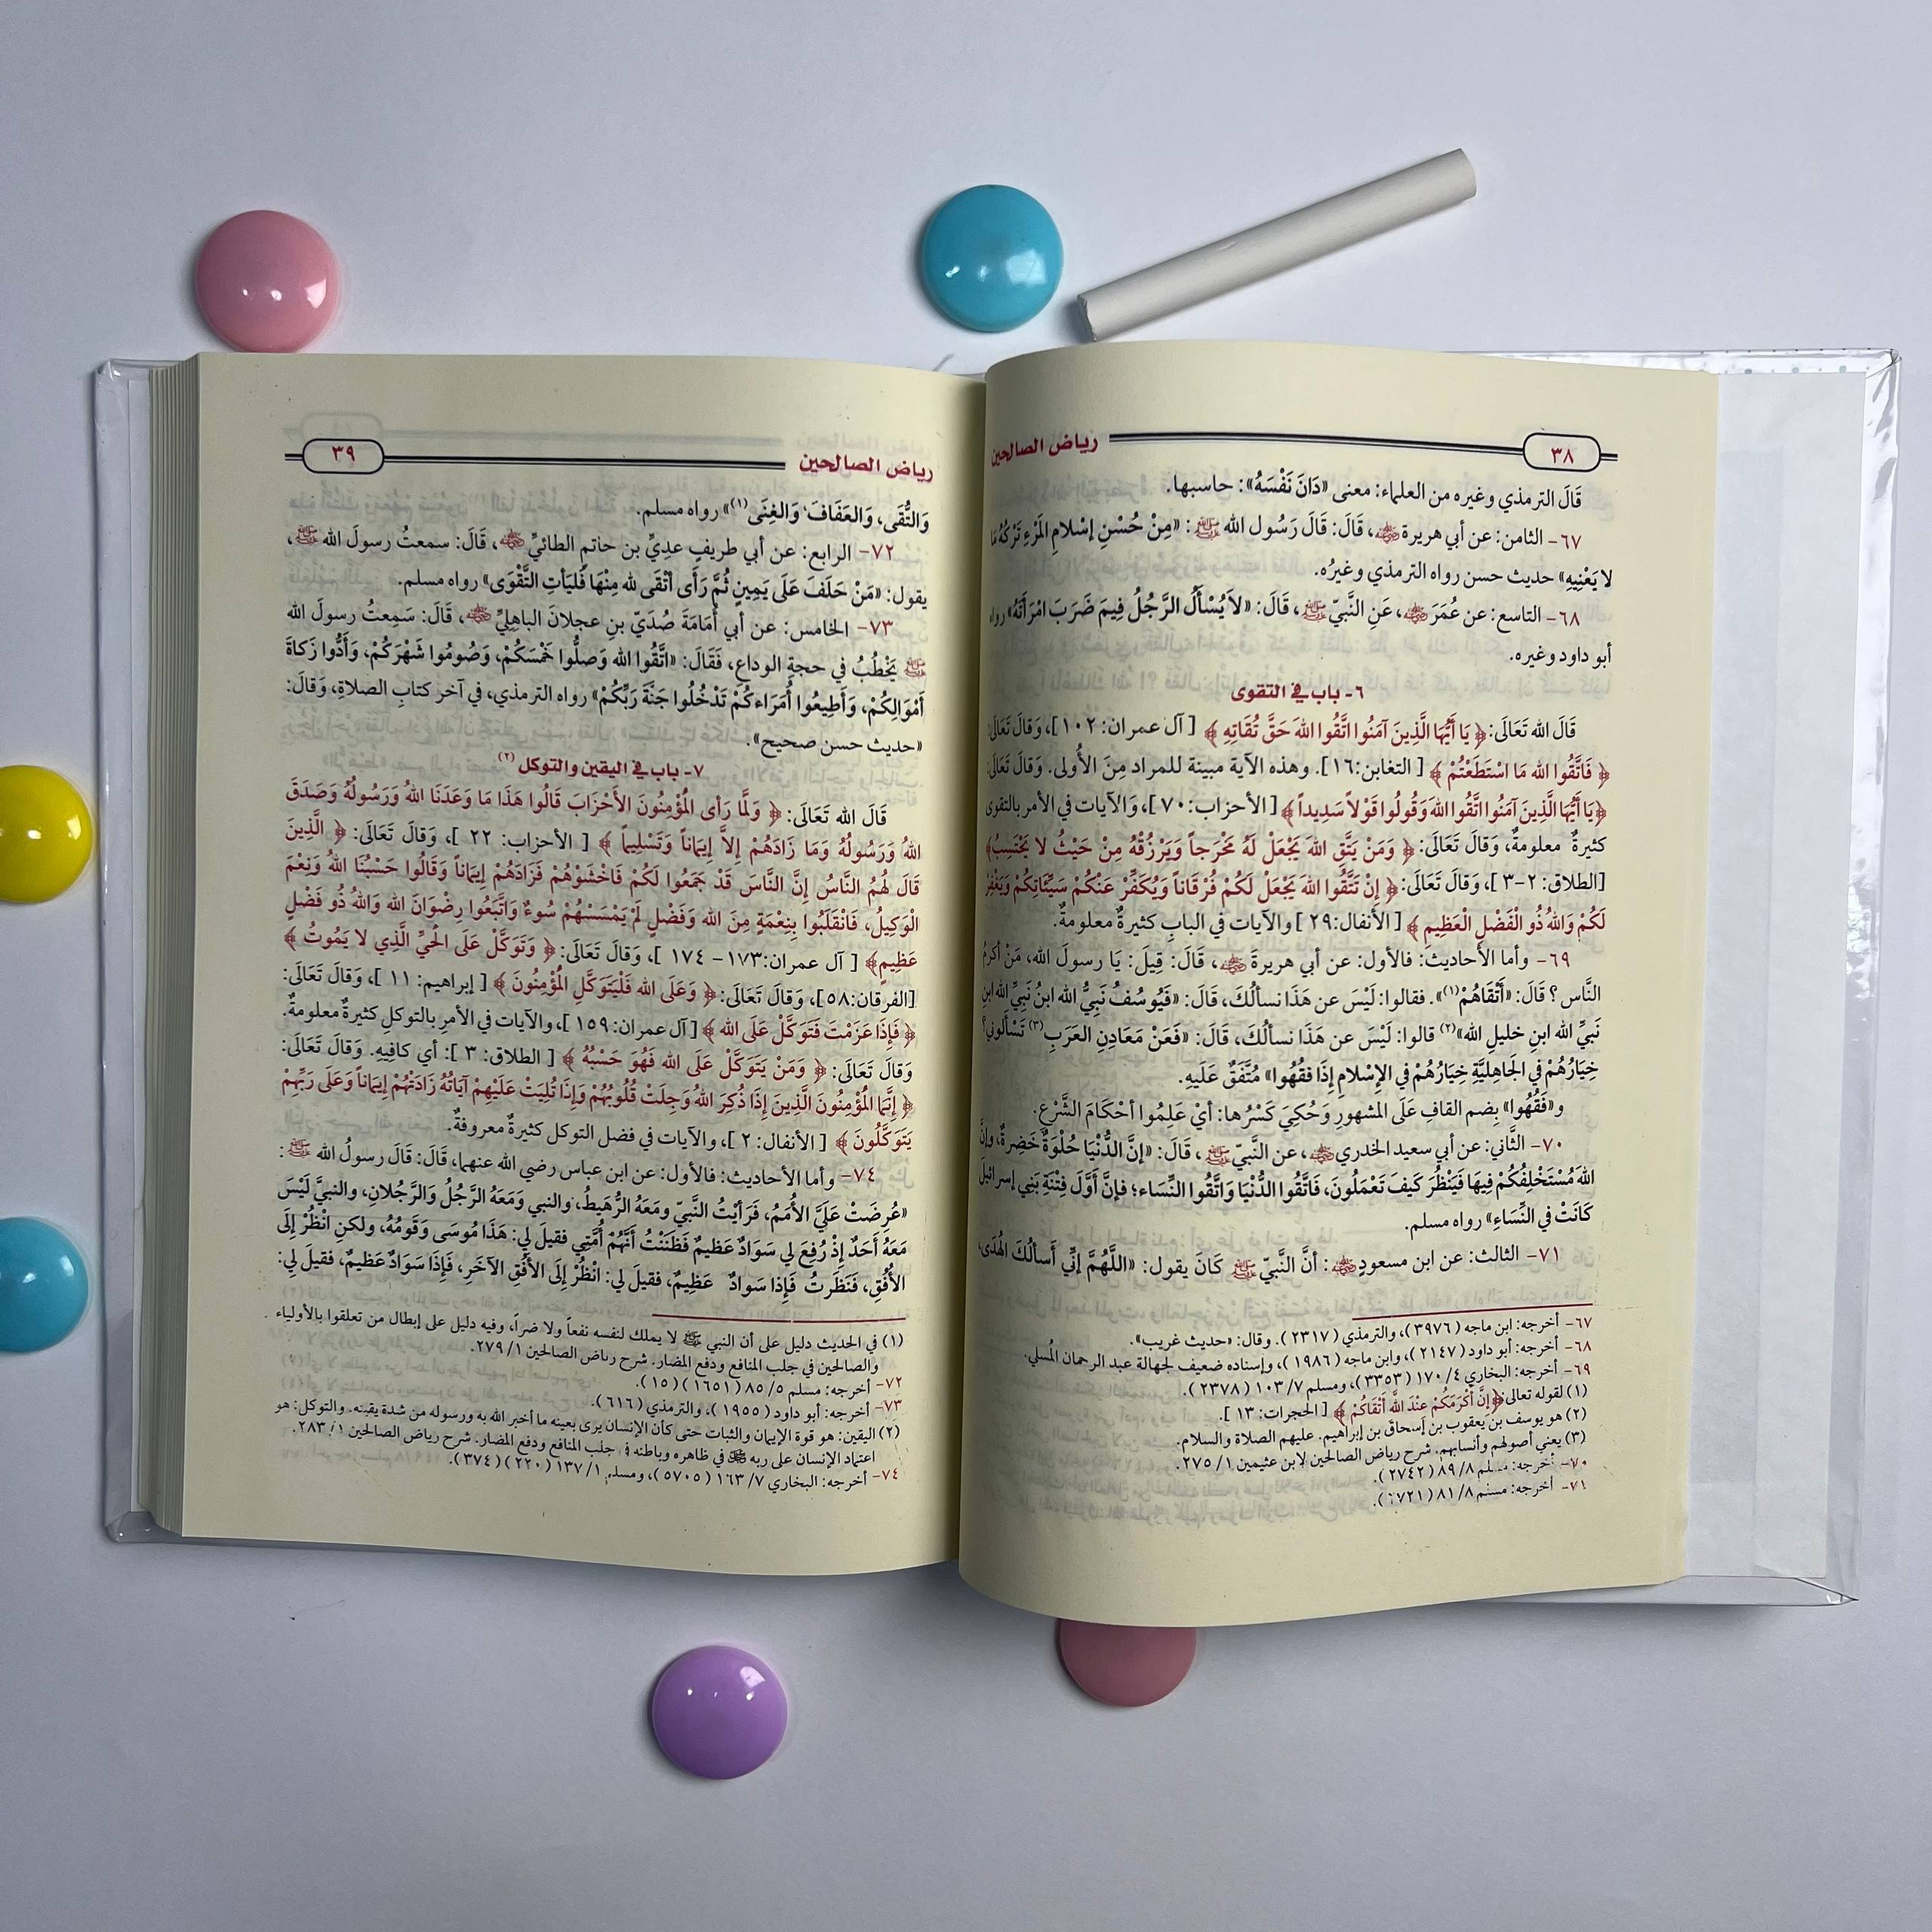 ٣٨ رياض الصالحين
قَالَ الترمذي وغيره من العلماء: معنى «دَانَ نَفْسَهُ»: حاسبها.
٦٧- الثامن: عن أبي هريرة ﵁، قَالَ: قَالَ رَسُول الله ﷺ: «مِنْ حُسْنِ إسْلامِ المَرْءِ تَرْكُهُ مَا
لا يَعْنِيهِ» حديث حسن رواه الترمذي وغيرُه.
٦٨- التاسع: عن عُمَرَ ﵁، عَنِ النَّبيّ ﷺ، قَالَ: «لاَ يُسْأَلُ الرَّجُلُ فِيمَ ضَرَبَ امْرَأَتَهُ» رواه
أبو داود وغيره.
٦- باب في التقوى
قَالَ الله تَعَالَى: ﴿ يَا أَيُّهَا الَّذِينَ آمَنُوا اتَّقُوا اللهَ حَقَّ تُقَاتِهِ ﴾ [ آل عمران: ١٠٢]، وَقالَ تَعَالَى:
﴿ فَاتَّقُوا الله مَا اسْتَطَعْتُمْ ﴾ [ التغابن:١٦]. وهذه الآية مبينة للمراد مِنَ الأُولى. وَقالَ تَعَالَى:
﴿يَا أَيُّهَا الَّذِينَ آمَنُوا اتَّقُوا اللهَ وَقُولُوا قَوْلاً سَدِيداً ﴾ [ الأحزاب: ٧٠]، وَالآيات في الأمر بالتقوى
كثيرةٌ معلومةٌ، وَقالَ تَعَالَى: ﴿ وَمَنْ يَتَّقِ اللهَ يَجْعَلْ لَهُ مَخْرَجاً وَيَرْزُقْهُ مِنْ حَيْثُ لا يَحْتَسِبُ﴾
[الطلاق: ٢-٣ ]، وَقالَ تَعَالَى: ﴿ إِنْ تَتَّقُوا اللهَ يَجْعَلْ لَكُمْ فُرْقَاناً وَيُكَفِّرْ عَنْكُمْ سَيِّئَاتِكُمْ وَيَغْفِرْ
لَكُمْ وَاللهُ ذُو الْفَضْلِ الْعَظِيمِ ﴾ [ الأنفال:٢٩ ] والآيات في البابِ كثيرةٌ معلومةٌ.
٦٩- وأما الأحاديث: فالأول: عن أبي هريرةَ ﵁، قَالَ: قِيلَ: يَا رسولَ الله، مَنْ أكرمُ
النَّاس ؟ قَالَ: «أَتْقَاهُمْ(١)». فقالوا: لَيْسَ عن هَذَا نسألُكَ، قَالَ: «فَيُوسُفُ نَبِيُّ الله ابنُ نَبيِّ اللهِ ابنِ
نَبيِّ الله ابنِ خليلِ الله»(٢) قالوا: لَيْسَ عن هَذَا نسألُكَ، قَالَ: «فَعَنْ مَعَادِنِ العَرَبِ(٣) تَسْأَلوني؟
خِيَارُهُمْ في الجَاهِليَّةِ خِيَارُهُمْ في الإِسْلامِ إِذَا فقُهُوا» مُتَّفَقٌ عَلَيهِ.
و«فَقُهُوا» بِضم القافِ عَلَى المشهورِ وَحُكِيَ كَسْرُها: أيْ عَلِمُوا أحْكَامَ الشَّرْعِ.
٧٠- الثَّاني: عن أبي سعيد الخدري ﵁، عن النَّبيّ ﷺ، قَالَ: «إنَّ الدُّنْيَا حُلْوَةٌ خَضِرةٌ، وإنَّ
اللهَ مُسْتَخْلِفُكُمْ فِيهَا فَيَنْظُرَ كَيفَ تَعْمَلُونَ، فَاتَّقُوا الدُّنْيَا وَاتَّقُوا النِّسَاء؛ فإنَّ أَوَّلَ فِتْنَةِ بَنِي إسرائيلَ
كَانَتْ في النِّسَاءِ» رواه مسلم.
٧١- الثالث: عن ابن مسعودٍ ﵁: أنَّ النَّبيّ ﷺ كَانَ يقول: «اللَّهُمَّ إنِّي أَسألُكَ الهُدَى،
٦٧- أخرجه: ابن ماجه ( ٣٩٧٦)، والترمذي ( ٢٣١٧). وقال: «حديث غريب».
٦٨- أخرجه: أبو داود ( ٢١٤٧)، وابن ماجه ( ١٩٨٦)، وإسناده ضعيف لجهالة عبد الرحمان المُسلي.
٦٩- أخرجه: البخاري ٤/ ١٧٠ ( ٣٣٥٣)، ومسلم ٧/ ١٠٣ ( ٢٣٧٨ ).
(١) لقوله تعالى: ﴿إِنَّ أَكْرَمَكُمْ عِنْدَ اللَّهِ أَتْقَاكُمْ ﴾ [ الحجرات: ١٣ ].
(٢) هو يوسف بن يعقوب بن إسحاق بن إبراهيم. عليهم الصلاة والسلام.
(٣) يعني أصولهم وأنسابهم. شرح رياض الصالحين لابن عثيمين ١/ ٢٧٥.
٧٠- أخرجه: مسلم ٨/ ٨٩ ( ٢٧٤٢).
٧١- أخرجه: مسلم ٨/ ٨١ ( ٢٧٢١).
رياض الصالحين ٣٩
وَالتُّقَى، وَالعَفَافَ، وَالغِنَى(١)» رواه مسلم.
٧٢- الرابع: عن أبي طريفٍ عدِيِّ بن حاتمٍ الطائيِّ ﵁، قَالَ: سمعتُ رسولَ الله ﷺ،
يقول: «مَنْ حَلَفَ عَلَى يَمِينٍ ثُمَّ رَأَى أتْقَى لله مِنْهَا فَليَأتِ التَّقْوَى» رواه مسلم.
٧٣- الخامس: عن أبي أُمَامَةَ صُدَيّ بنِ عجلانَ الباهِلِيِّ ﵁، قَالَ: سَمِعتُ رسولَ الله
ﷺ يَخْطُبُ في حجةِ الوداع، فَقَالَ: «اتَّقُوا الله وَصلُّوا خَمْسَكُمْ، وَصُومُوا شَهْرَكُمْ، وَأَدُّوا زَكاةَ
أَمْوَالِكُمْ، وَأَطِيعُوا أُمَرَاءكُمْ تَدْخُلُوا جَنَّةَ رَبِّكُمْ» رواه الترمذي، في آخر كتابِ الصلاةِ، وَقالَ:
«حديث حسن صحيح».
٧- باب في اليقين والتوكل (٢)
قَالَ الله تَعَالَى: ﴿ وَلَمَّا رَأى الْمُؤْمِنُونَ الأَحْزَابَ قَالُوا هَذَا مَا وَعَدَنَا اللهُ وَرَسُولُهُ وَصَدَقَ
اللهُ وَرَسُولُهُ وَمَا زَادَهُمْ إِلاَّ إِيمَاناً وَتَسْلِيماً ﴾ [ الأحزاب: ٢٢ ]، وَقالَ تَعَالَى: ﴿ الَّذِينَ
قَالَ لَهُمُ النَّاسُ إِنَّ النَّاسَ قَدْ جَمَعُوا لَكُمْ فَاخْشَوْهُمْ فَزَادَهُمْ إِيمَاناً وَقَالُوا حَسْبُنَا اللهُ وَنِعْمَ
الْوَكِيلُ، فَانْقَلَبُوا بِنِعْمَةٍ مِنَ اللهِ وَفَضْلٍ لَمْ يَمْسَسْهُمْ سُوءٌ وَاتَّبَعُوا رِضْوَانَ اللهِ وَاللهُ ذُو فَضْلٍ
عَظِيمٍ﴾ [ آل عمران:١٧٣ - ١٧٤ ]، وَقالَ تَعَالَى: ﴿ وَتَوَكَّلْ عَلَى الْحَيِّ الَّذِي لا يَمُوتُ ﴾
[الفرقان:٥٨]، وَقالَ تَعَالَى: ﴿ وَعَلَى اللهِ فَلْيَتَوَكَّلِ الْمُؤْمِنُونَ ﴾ [ إبراهيم: ١١ ]، وَقالَ تَعَالَى:
﴿ فَإِذَا عَزَمْتَ فَتَوَكَّلْ عَلَى اللهِ ﴾ [آل عمران: ١٥٩ ]، والآيات في الأمرِ بالتوكلِ كثيرةٌ معلومةٌ.
وَقالَ تَعَالَى: ﴿ وَمَنْ يَتَوَكَّلْ عَلَى اللهِ فَهُوَ حَسْبُهُ ﴾ [ الطلاق: ٣ ]: أي كافِيهِ. وَقالَ تَعَالَى:
﴿ إِنَّمَا الْمُؤْمِنُونَ الَّذِينَ إِذَا ذُكِرَ اللهُ وَجِلَتْ قُلُوبُهُمْ وَإِذَا تُلِيَتْ عَلَيْهِمْ آيَاتُهُ زَادَتْهُمْ إِيمَاناً وَعَلَى رَبِّهِمْ
يَتَوَكَّلُونَ ﴾ [ الأنفال: ٢ ]، والآيات في فضل التوكل كثيرةٌ معروفةٌ.
٧٤- وأما الأحاديث: فالأول: عن ابن عباس رضي الله عنهما، قَالَ: قَالَ رسولُ الله ﷺ:
«عُرِضَتْ عَلَيَّ الأُمَمُ، فَرَأيْتُ النَّبيّ ومَعَهُ الرُّهَيطُ، والنبي وَمَعَهُ الرَّجُلُ وَالرَّجُلانِ، والنبيَّ لَيْسَ
مَعَهُ أَحَدٌ إِذْ رُفِعَ لي سَوَادٌ عَظيمٌ فَظَنَنْتُ أَنَّهُمْ أُمَّتِي فقيلَ لِي: هَذَا مُوسَى وَقَومُهُ، ولكنِ انْظُرْ إِلَى
الأُفُقِ، فَنَظَرْتُ فَإِذا سَوادٌ عَظِيمٌ، فقيلَ لي: انْظُرْ إِلَى الأفُقِ الآخَرِ، فَإِذَا سَوَادٌ عَظيمٌ، فقيلَ لِي:
(١) في الحديث دليل على أن النبي ﷺ لا يملك لنفسه نفعاً ولا ضراً، وفيه دليل على إبطال من تعلقوا بالأولياء
والصالحين في جلب المنافع ودفع المضار. شرح رياض الصالحين ١/ ٢٧٩.
٧٢- أخرجه: مسلم ٥/ ٨٥ ( ١٦٥١ ) ( ١٥ ).
٧٣- أخرجه: أبو داود ( ١٩٥٥ )، والترمذي ( ٦١٦).
(٢) اليقين: هو قوة الإيمان والثبات حتى كأن الإنسان يرى بعينه ما أخبر الله به ورسوله من شدة يقينه. والتوكل: هو
اعتماد الإنسان على ربه ﷻ في ظاهره وباطنه في جلب المنافع ودفع المضار. شرح رياض الصالحين ١/ ٢٨٣.
٧٤- أخرجه: البخاري ٧/ ١٦٣ ( ٥٧٠٥)، ومسلم ١/ ١٣٧ ( ٢٢٠ ) ( ٣٧٤).